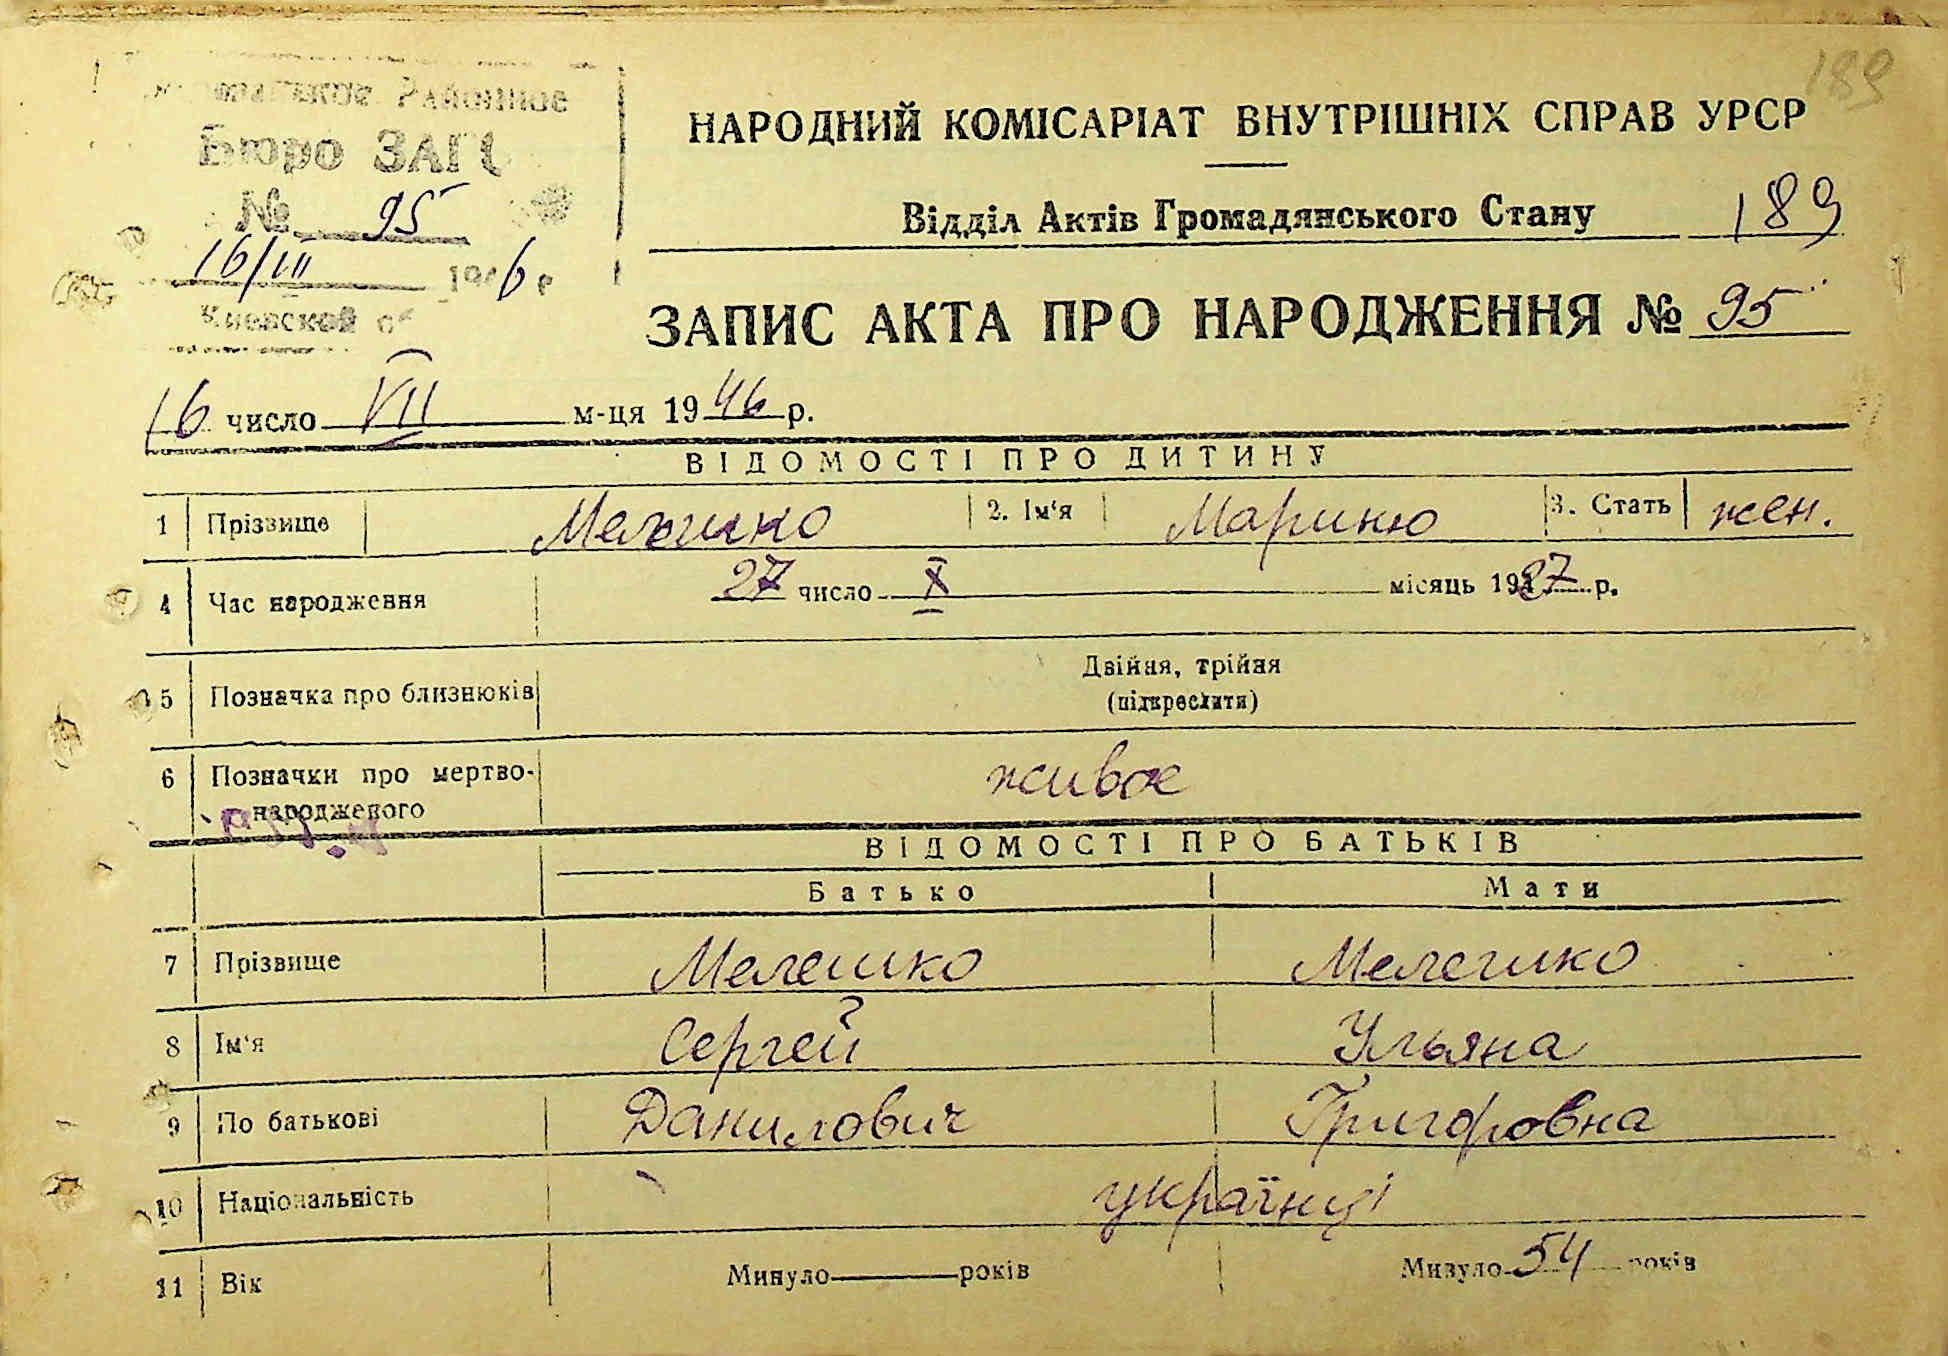 189
Районное
Бюро ЗАГС
№ 95
16/VII 1946 г
Киевской об
НАРОДНИЙ КОМІСАРІАТ ВНУТРІШНІХ СПРАВ УРСР
Відділ Актів Громадянського Стану 189
ЗАПИС АКТА ПРО НАРОДЖЕННЯ № 95
16 число VII м-ця 1946 р.
ВІДОМОСТІ ПРО ДИТИНУ
1 Прізвище Мелешко 2. Ім'я Марию 3. Стать жен.
4 Час народження 27 число X місяць 1927 р.
5 Позначка про близнюків Двійня, трійня
(підкреслити)
6 Позначки про мертво-
народженого живое
ВІДОМОСТІ ПРО БАТЬКІВ
Батько Мати
7 Прізвище Мелешко Мелешко
8 Ім'я Сергей Ульяна
9 По батькові Данилович Григоровна
10 Національність українці
11 Вік Минуло років Минуло 54 років